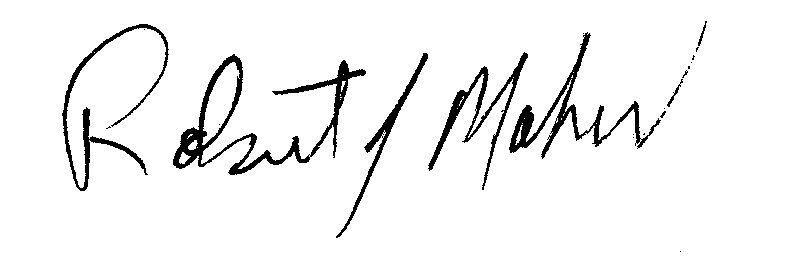 Robert J Maher